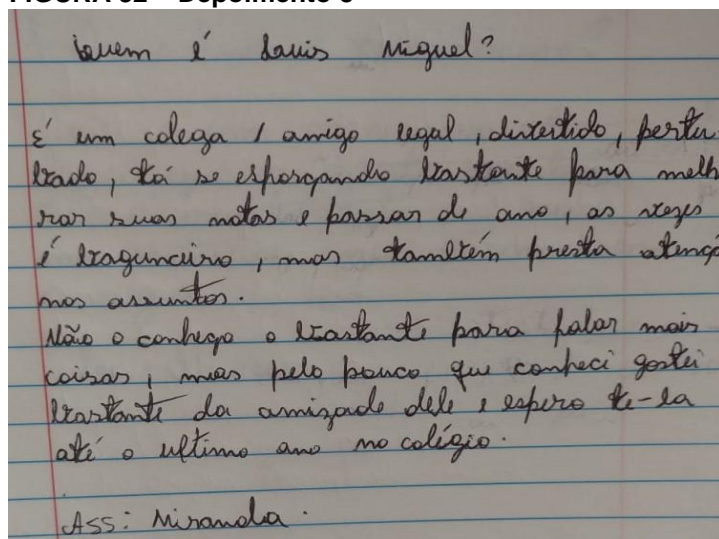 Quem é Louis Miguel?
É um colega / amigo legal, divertido, pertu
bado, tá se esforçando bastante para melh
rar suas notas e passar de ano, as vezes
é bagunceiro, mas também presta atenç
nos assuntos.
Não o conheço o bastante para falar mais
coisas, mas pelo pouco que conheci gostei
bastante da amizade dele e espero te-la
até o ultimo ano no colégio.
Ass: Miranda.